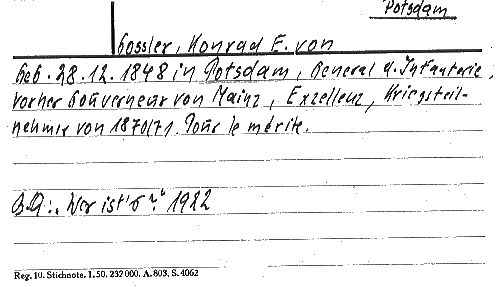 Potsdam
Gossler, Konrad E. von
Geb. 28.12.1848 in Potsdam, General d. Infanterie,
vorher Gouverneur von Mainz, Exzellenz, Kriegsteil-
nehmer von 1870/71. Pour le mérite.
B.Q.: „Wer ist's?" 1922
Reg. 10. Stichnote. 1.50. 232000. A. 803. S. 4062